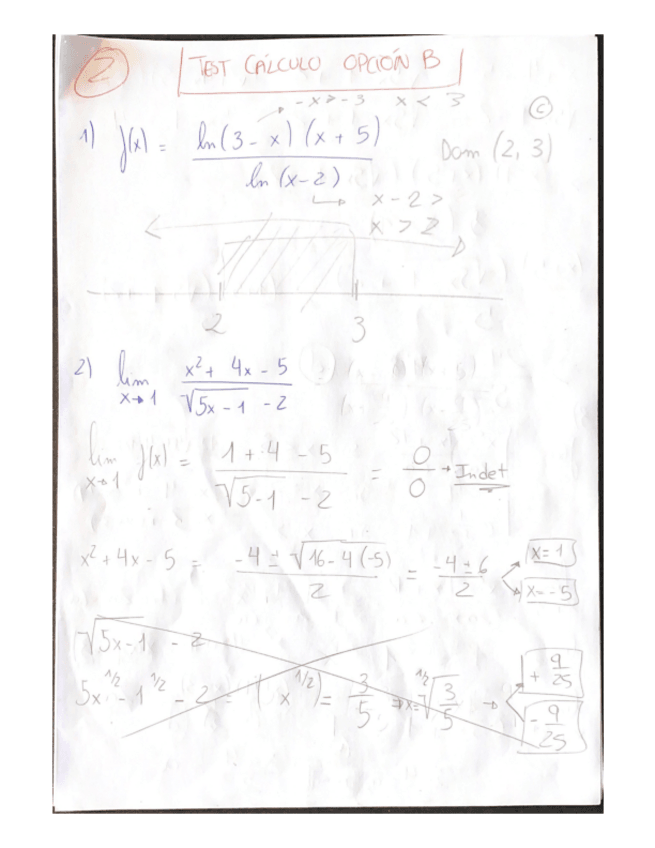 2 TEST CÁLCULO OPCIÓN B
-x > -3 x < 3 c
1) f(x) = ln(3 - x) (x + 5) / ln(x-2) Dom (2, 3)
x - 2 >
x > 2
2 3
2) lim x→1 x² + 4x - 5 / √5x - 1 - 2
lim x→1 f(x) = 1 + 4 - 5 / √5-1 - 2 = 0/0 → Indet
x² + 4x - 5 = -4 ± √16 - 4(-5) / 2 = -4 ± 6 / 2 x = 1
x = -5
√5x-1 - 2
5x^1/2 - 1^1/2 - 2 = (x^1/2) = 3/5 → x = ^1/2√3/5 → + 9/25
- 9/25